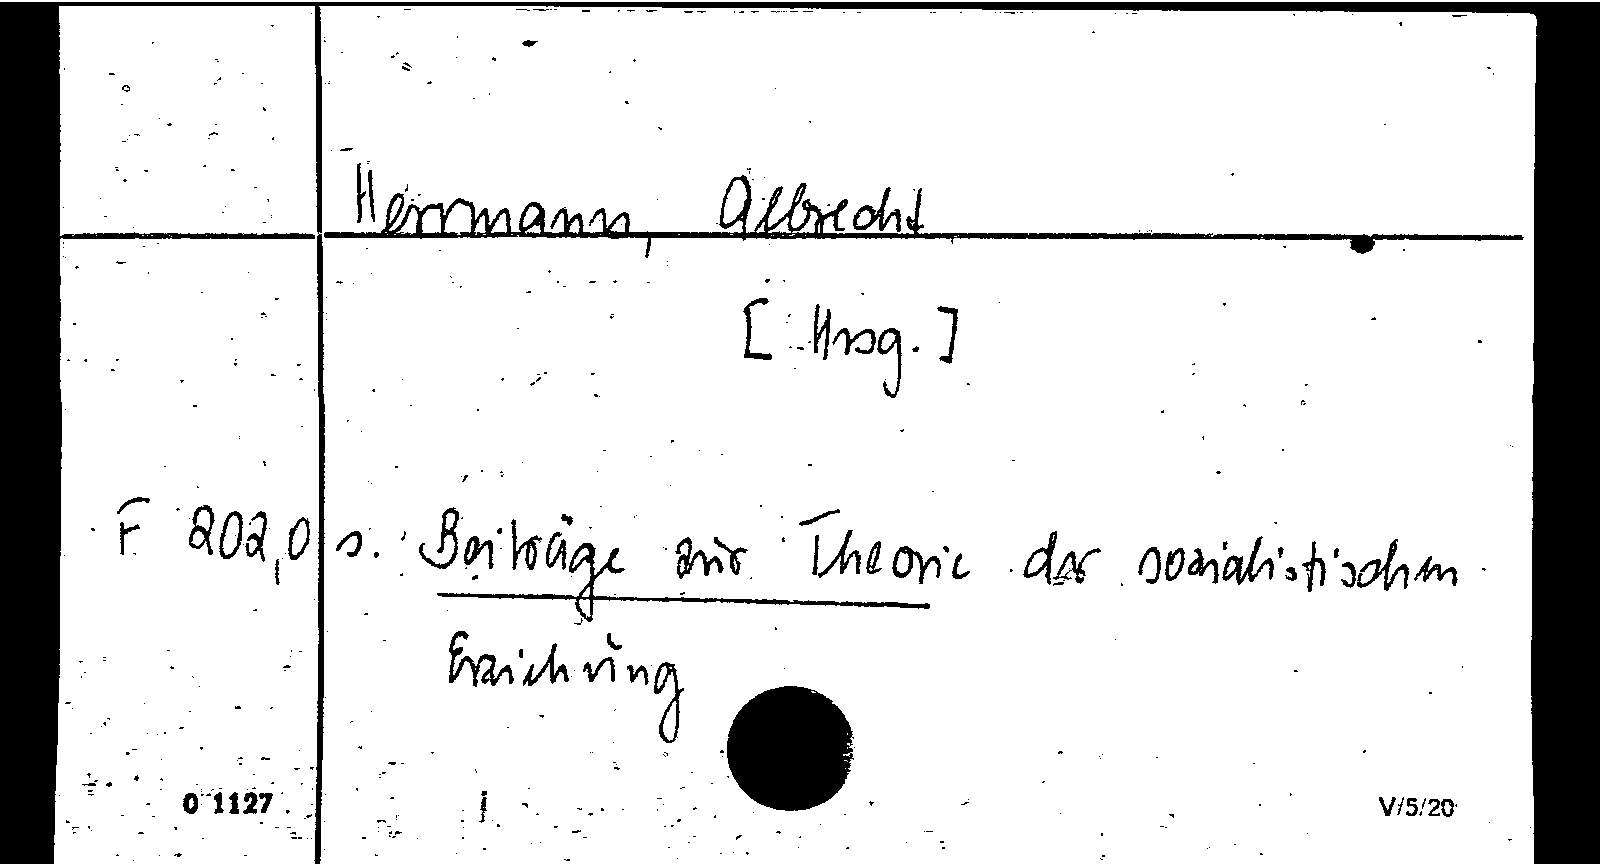 Herrmann, Albrecht
[Hrsg.]
F 202,0 s. Beiträge zur Theorie der sozialistischen
Erziehung
0 1127
V/5/20